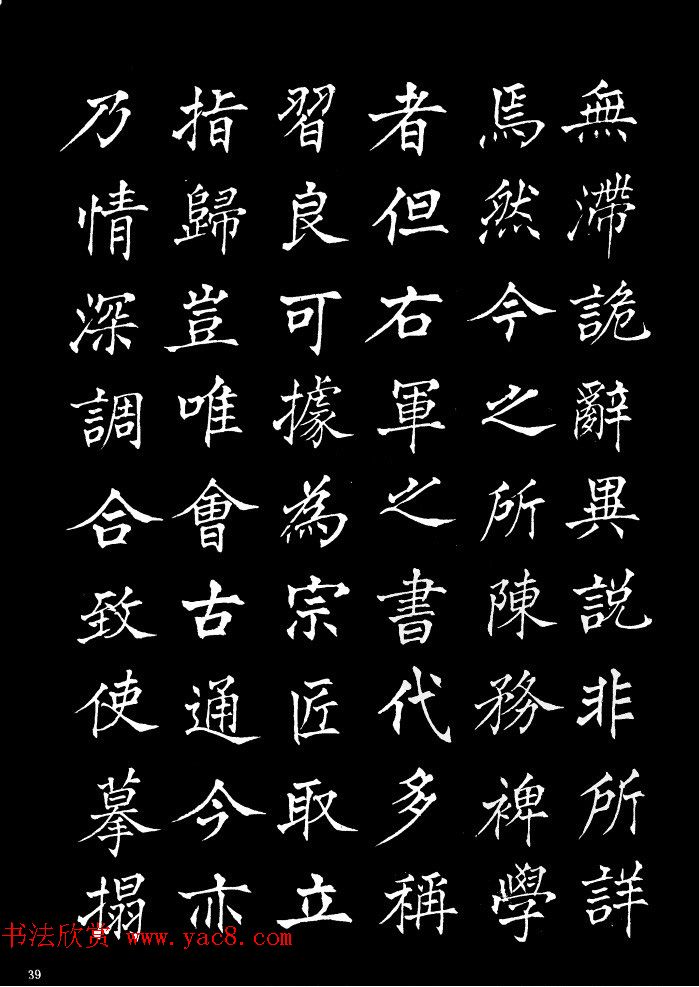 無滯詭辭異說非所詳
焉然今之所陳務裨學
者但右軍之書代多稱
習良可據為宗匠取立
指歸豈唯會古通今亦
乃情深調合致使摹搨
书法欣赏 www.yac8.com
39